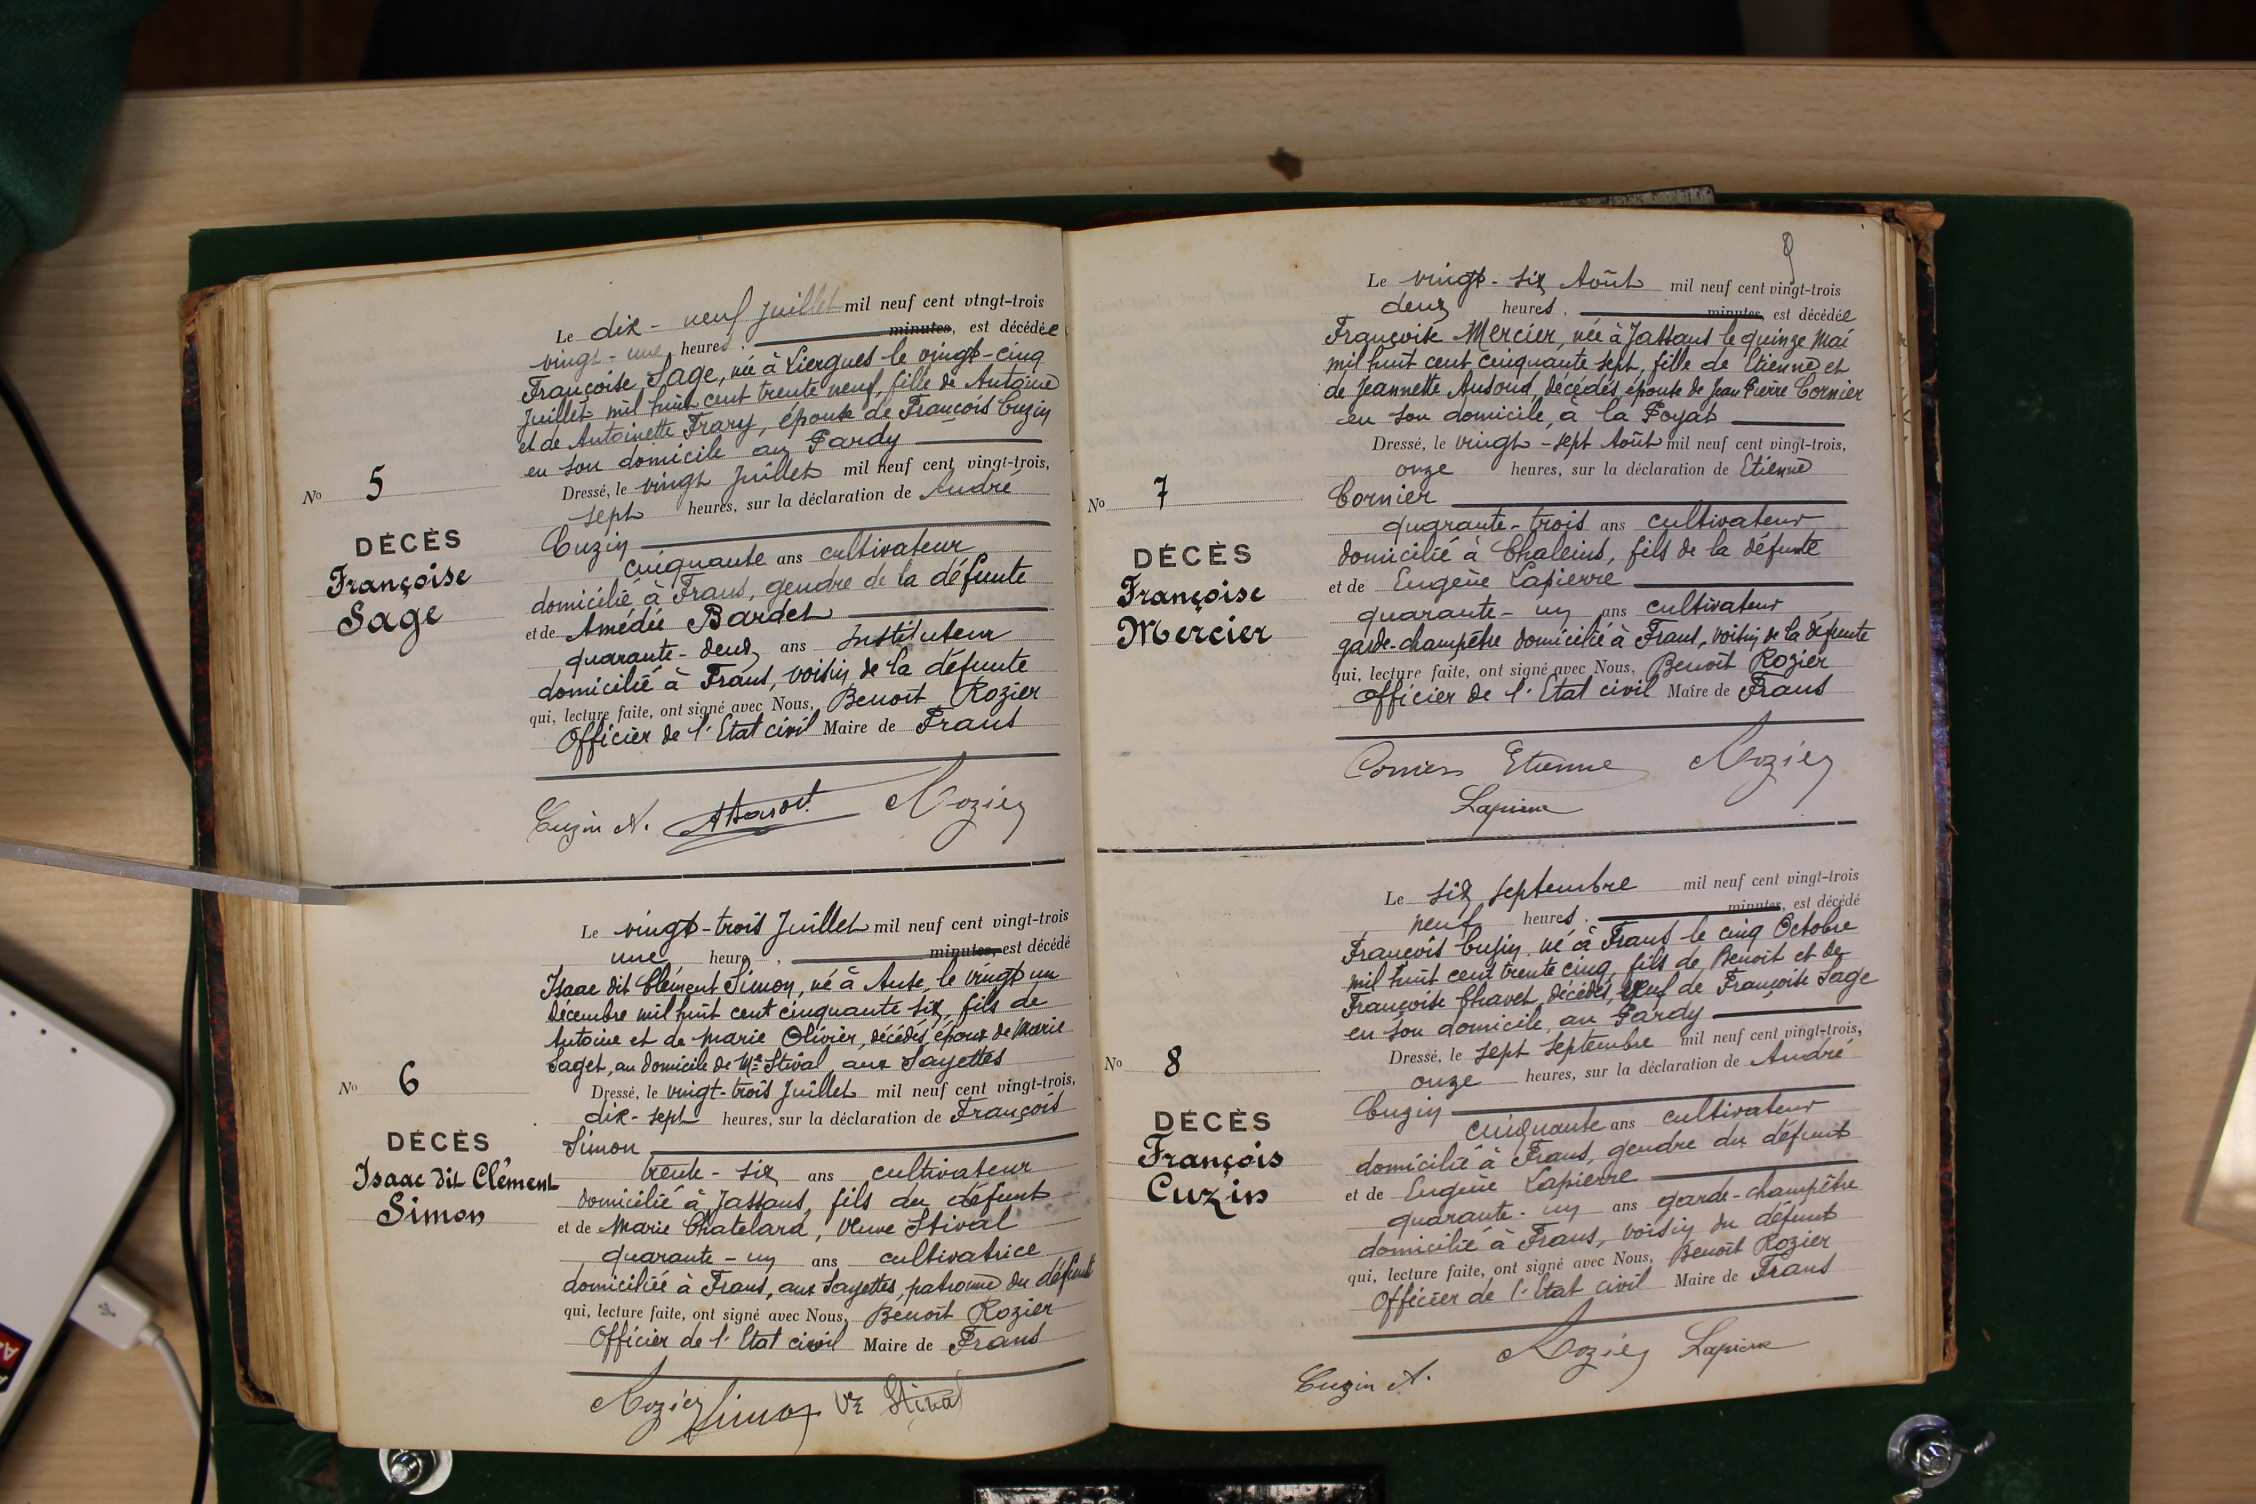 Le dix-neuf Juillet mil neuf cent vingt-trois
vingt-une heures. minutes, est décédée
Françoise Sage, née à Liergues le vingt-cinq
Juillet mil huit cent trente neuf, fille de Antoine
et de Antoinette Frary, épouse de François Cuzin
en son domicile au Gardy
Dressé, le vingt Juillet mil neuf cent vingt-trois,
sept heures, sur la déclaration de André
No 5
DÉCÈS
Françoise
Sage
Cuzin
cinquante ans cultivateur
domicilié à Frans, gendre de la défunte
et de Amédée Bardet
quarante-deux ans Instituteur
domicilié à Frans, voisin de la défunte
qui, lecture faite, ont signé avec Nous, Benoît Rozier
Officier de l'Etat civil Maire de Frans
Cuzin A. ABardet Rozier
Le vingt-trois Juillet mil neuf cent vingt-trois
une heure. minutes, est décédé
Isaac dit Clément Simon, né à Anse, le vingt un
Décembre mil huit cent cinquante six, fils de
Antoine et de Marie Olivier, décédés, époux de Marie
Saget, au domicile de Me Stival aux Sayettes
Dressé, le vingt-trois Juillet mil neuf cent vingt-trois,
dix-sept heures, sur la déclaration de François
No 6
DÉCÈS
Isaac dit Clément
Simon
Simon
trente-six ans cultivateur
domicilié à Jassans, fils du défunt
et de Marie Chatelard, Veuve Stival
quarante-un ans cultivatrice
domiciliée à Frans, aux Sayettes, patronne du défunt
qui, lecture faite, ont signé avec Nous, Benoît Rozier
Officier de l'Etat civil Maire de Frans
Rozier Simon Ve Stival
9
Le vingt-six Août mil neuf cent vingt-trois
deux heures. minutes, est décédée
Françoise Mercier, née à Jassans le quinze Mai
mil huit cent cinquante sept, fille de Etienne et
de Jeannette Ausoud, décédés, épouse de Jean Pierre Cornier
en son domicile, à la Poyat
Dressé, le vingt-sept Août mil neuf cent vingt-trois,
onze heures, sur la déclaration de Etienne
No 7
DÉCÈS
Françoise
Mercier
Cornier
quarante-trois ans cultivateur
domicilié à Chaleins, fils de la défunte
et de Eugène Lapierre
quarante-un ans cultivateur
garde-champêtre domicilié à Frans, voisin de la défunte
qui, lecture faite, ont signé avec Nous, Benoît Rozier
Officier de l'Etat civil Maire de Frans
Cornier Etienne Rozier
Lapierre
Le six septembre mil neuf cent vingt-trois
neuf heures. minutes, est décédé
François Cuzin né à Frans le cinq Octobre
mil huit cent trente cinq, fils de Benoît et de
Françoise Chavet, décédés, veuf de Françoise Sage
en son domicile, au Gardy
Dressé, le sept septembre mil neuf cent vingt-trois,
onze heures, sur la déclaration de André
No 8
DÉCÈS
François
Cuzin
Cuzin
cinquante ans cultivateur
domicilié à Frans, gendre du défunt
et de Eugène Lapierre
quarante-un ans garde-champêtre
domicilié à Frans, voisin du défunt
qui, lecture faite, ont signé avec Nous, Benoît Rozier
Officier de l'Etat civil Maire de Frans
Cuzin A. Rozier Lapierre